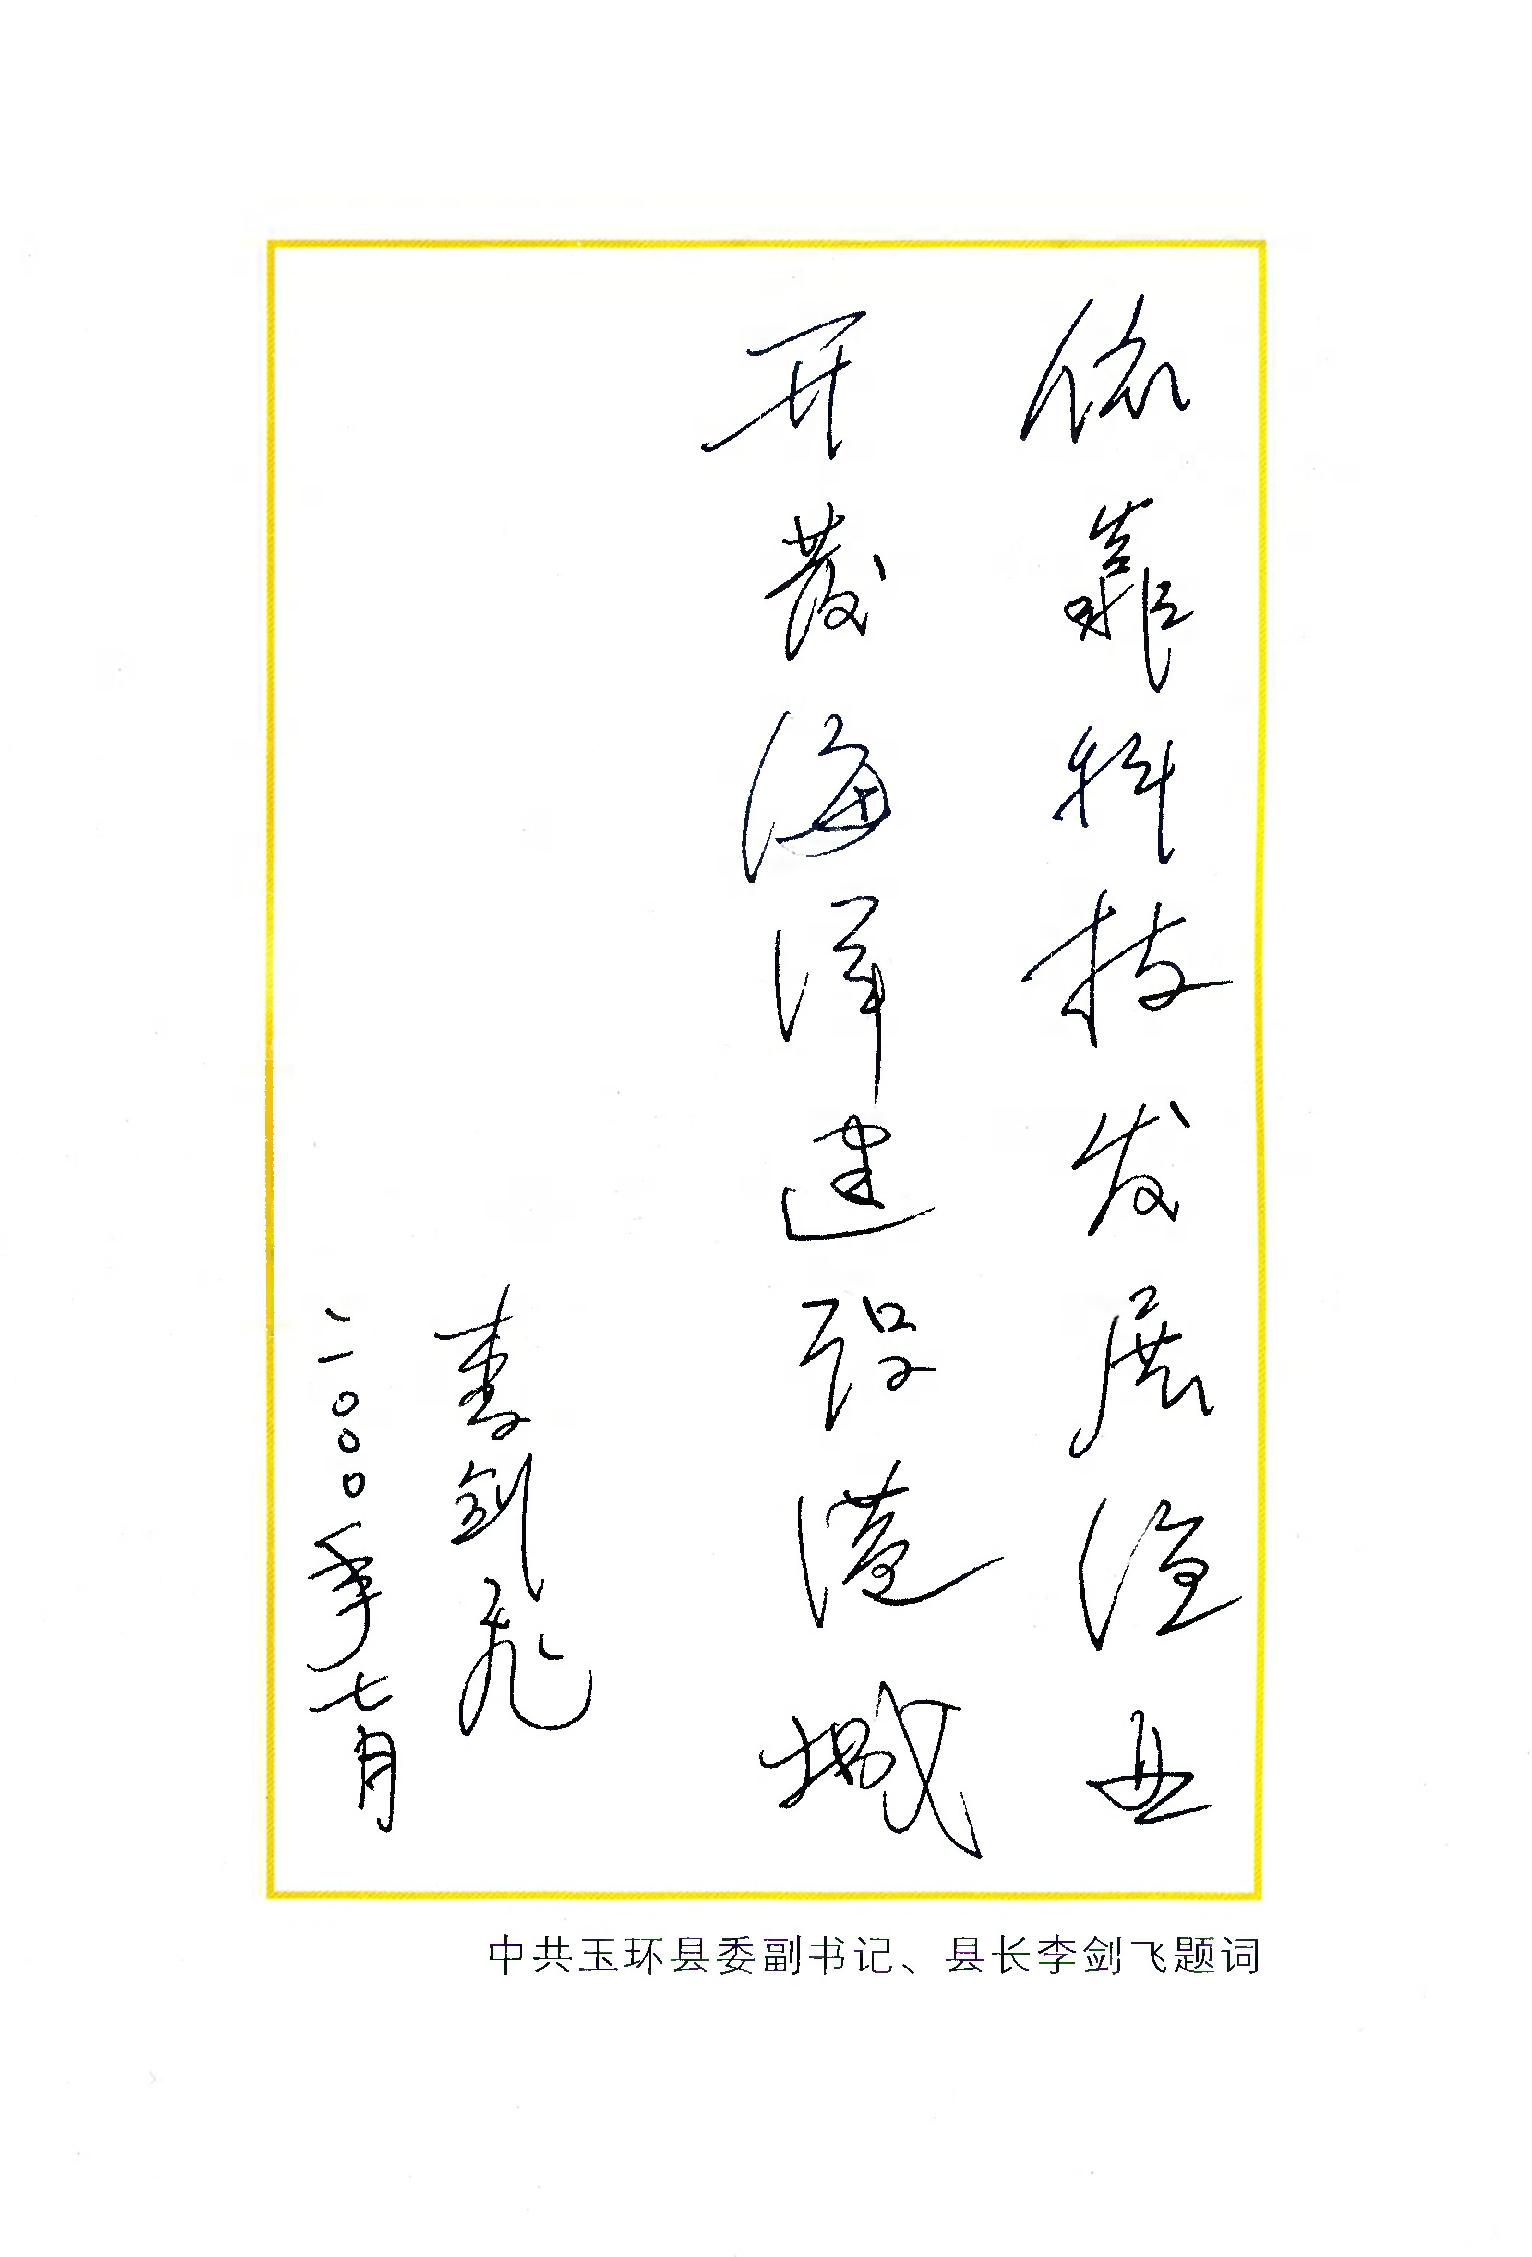 依靠科技发展渔业
开發海洋建设港城
李剑飛
二000年七月
中共玉环县委副书记、县长李剑飞题词